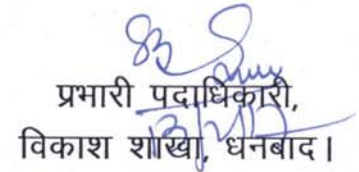 प्रभारी पदाधिकारी,
विकाश शाखा, धनबाद।